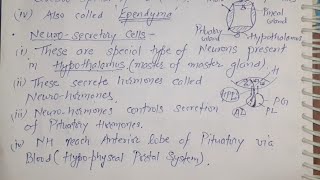 (iv) Also called Ependyma
Pineal
gland
Pituitary
gland
Hypothalamus
Neuro-Secretory Cells-
(i) These are special type of Neurons present
in Hypothalamus (master of master gland).
(ii) These secrete hormones called
Neuro-hormones.
(iii) Neuro-hormones controls secretion
of Pituitary Hormones.
AL
PL
(iv) NH reach Anterior lobe of Pituitary via
Blood (Hypophyseal Portal System).